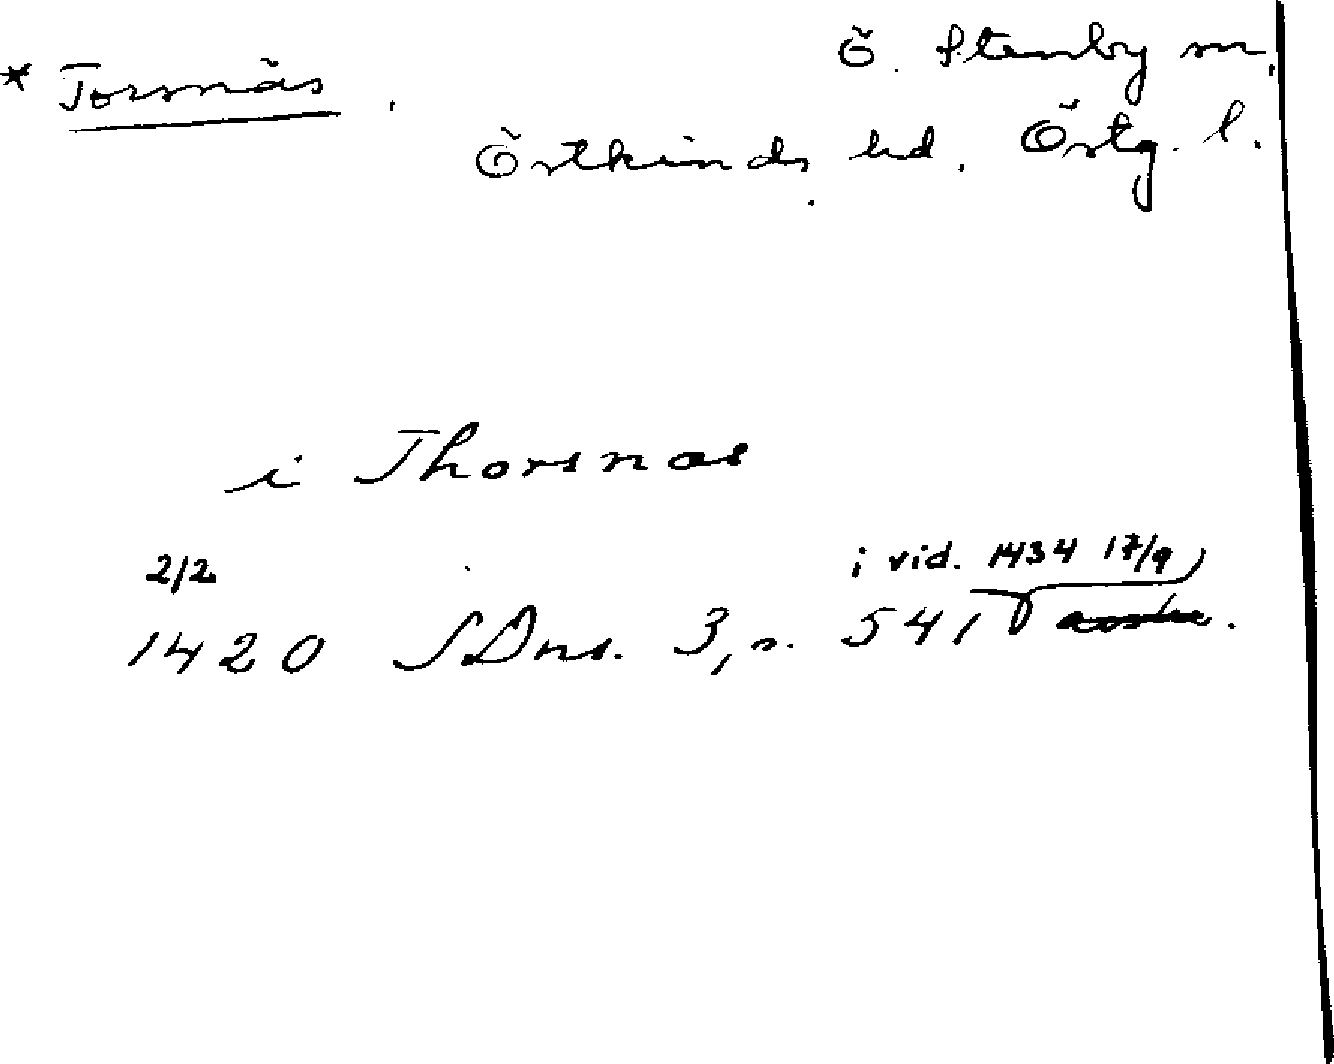 * Torsnäs.
Ö. Stenby sn,
Östkinds hd. Östg. l.
i Thorsnæs
2/2
i vid. 1434 17/9
1420 SDns. 3, s. 541